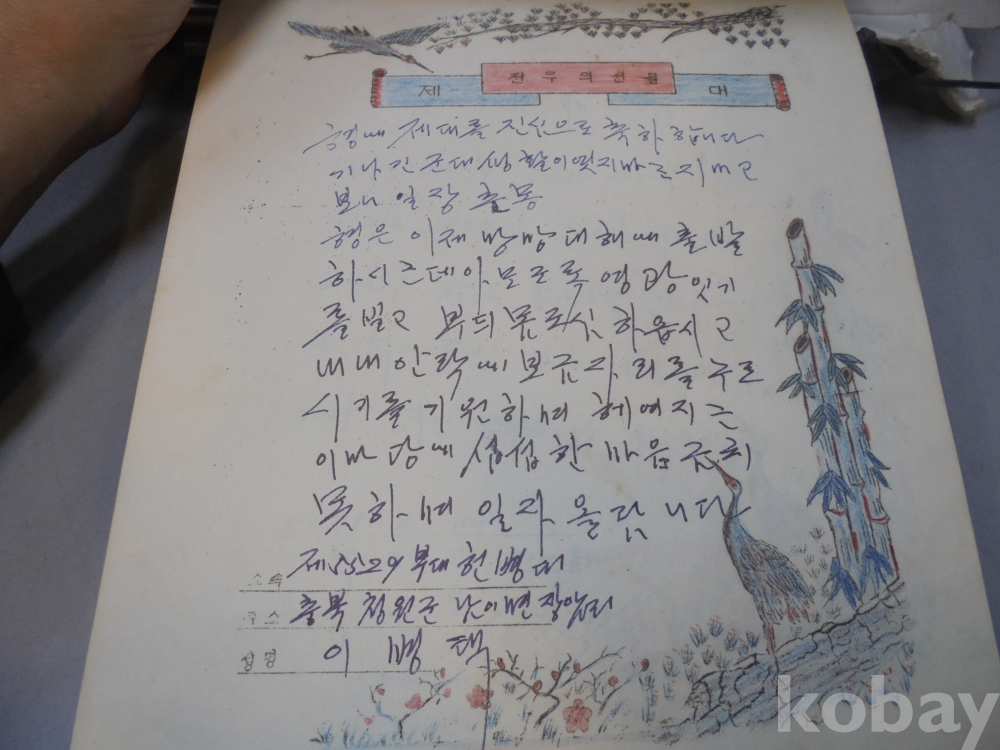 전우의 선물
제 대
형에 제대를 진심으로 축하합니다
기나긴 군대생활이 지
보니 일장 춘몽
형은 이제 망망대해에 출발
하시 모도록 영광잇기
를 빌고 부듸 몸조심 하옵시고
내내 안락에 보금자리를 구로
시기를 기원하며 헤여지는
이마당에 섭섭한 마음 금치
못하며 일자 올답니다
소속 제5529부대 헌병대
주소 충북 청원군 낭이면 장암리
성명 이병택
kobay